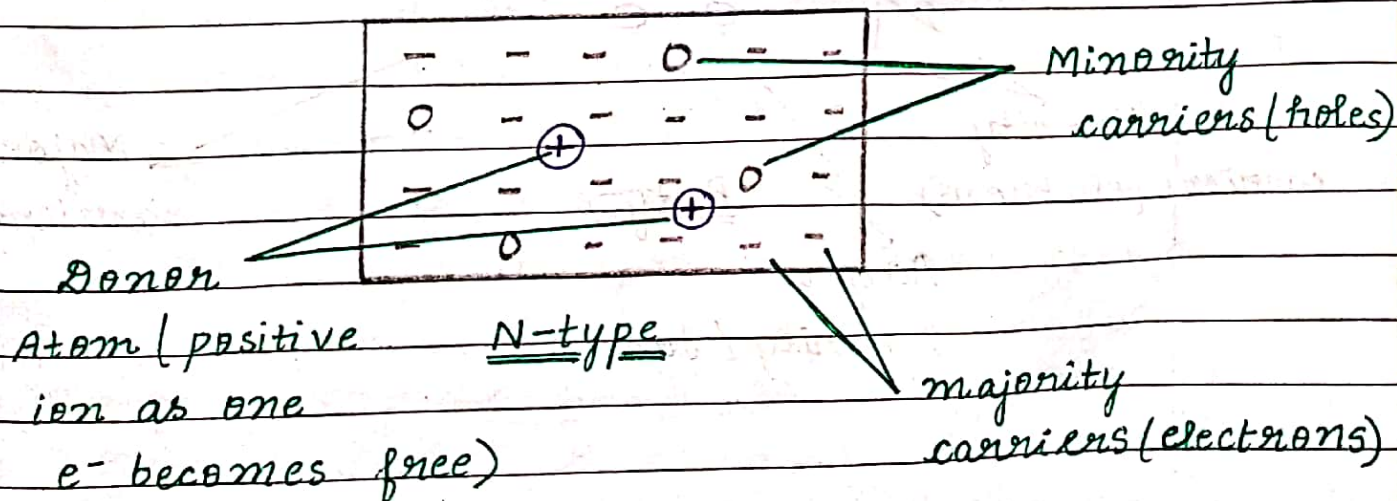 - - - O - -
O - - - - -
⊕
- - - - O -
⊕
- O - - - -
Minority
carriers (holes)
Donor
Atom ( positive
ion as one
e⁻ becomes free)
N-type
majority
carriers (electrons)